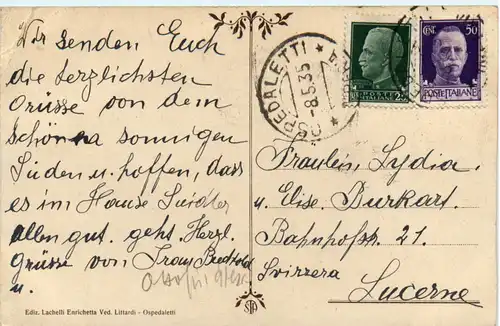 Wir senden Euch
die herzlichsten
Grüsse von dem
schönen sonnigen
Süden u. hoffen, dass
es im Hause
allen gut. geht. Herzl.
Grüsse von Frau
u.
Ediz. Lachelli Enrichetta Ved. Littardi - Ospedaletti
OSPEDALETTI
-8.5.35
CENT. 50
POSTE ITALIANE
Fräulein Lydia
u. Elise Burkart
Bahnhofstr. 21.
Svizzera
Lucerne